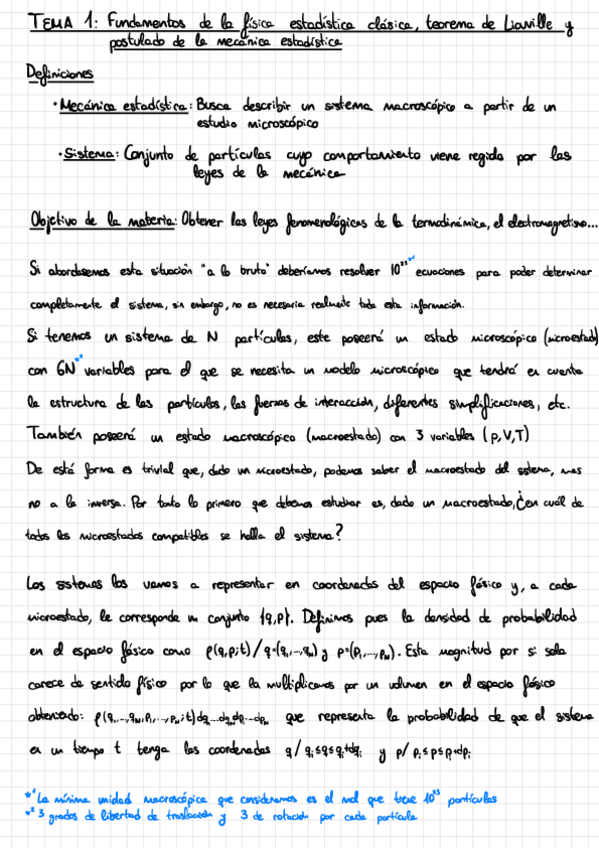 TEMA 1: Fundamentos de la física estadística clásica, teorema de Liouville y
postulado de la mecánica estadística
Definiciones
· Mecánica estadística: Busca describir un sistema macroscópico a partir de un
estudio microscópico
· Sistema: Conjunto de partículas cuyo comportamiento viene regido por las
leyes de la mecánica
Objetivo de la materia: Obtener las leyes fenomenológicas de la termodinámica, el electromagnetismo...
Si abordásemos esta situación "a lo bruto" deberíamos resolver 10²³ *¹ ecuaciones para poder determinar
completamente el sistema, sin embargo, no es necesaria realmente toda esta información.
Si tenemos un sistema de N partículas, este poseerá un estado microscópico (microestado)
con 6N *² variables para el que se necesita un modelo microscópico que tendrá en cuenta
la estructura de las partículas, las fuerzas de interacción, diferentes simplificaciones, etc.
También poseerá un estado macroscópico (macroestado) con 3 variables (p,V,T)
De está forma es trivial que, dado un microestado, podemos saber el macroestado del sistema, mas
no a la inversa. Por tanto lo primero que debemos estudiar es, dado un macroestado, ¿en cuál de
todos los microestados compatibles se halla el sistema?
Los sistemas los vamos a representar en coordenadas del espacio fásico y, a cada
microestado, le corresponde un conjunto {q,p}. Definimos pues la densidad de probabilidad
en el espacio fásico como ρ(q,p;t) / q=(q₁,...,qN) y p=(p₁,...,pN). Esta magnitud por si sola
carece de sentido físico por lo que la multiplicamos por un volumen en el espacio fásico
obteniendo: ρ(q₁,...,qN,p₁,...,pN;t)dq₁...dqN dp₁...dpN que representa la probabilidad de que el sistema
en un tiempo t tenga las coordenadas q / qᵢ≤q≤qᵢ+dqᵢ y p / pᵢ≤p≤pᵢ+dpᵢ
*¹ La mínima unidad macroscópica que consideramos es el mol que tiene 10²³ partículas
*² 3 grados de libertad de traslación y 3 de rotación por cada partícula